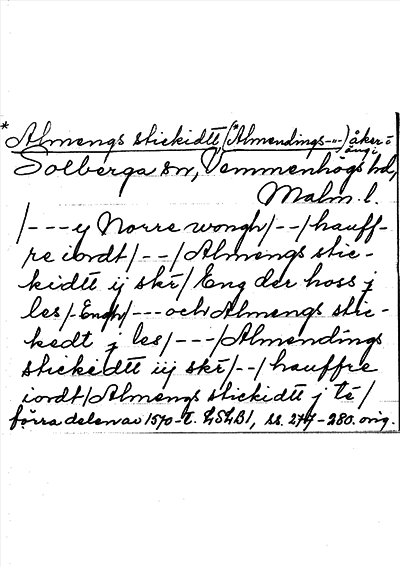 * Almengs stickidtt (*Almendings ---) åker- o
ängs
Solberga sn, Vemmenhögs hd,
Malm. l.
/---y Norre wongh/--/hauff-
re iordt/--/Almengs stic-
kidtt ij skr/Eng der hoss j
les/-Engh/---och Almengs stic-
kedt j les/---/Almendings
stickidtt iij skr/--/hauffre
iordt/Almengs stickidtt j té/
förra delen av 1570-t. LSLB1, ss. 277-280. orig.